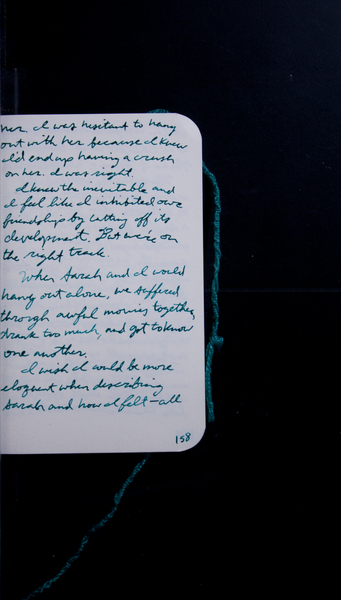 her. I was hesitant to hang
out with her because I knew
I'd end up having a crush
on her. I was right.
I knew the inevitable and
I feel like I inhibited our
friendship by cutting off its
development. But we're on
the right track.
When Sarah and I would
hang out alone, we suffered
through awful movies together,
drank too much, and got to know
one another.
I wish I would be more
eloquent when describing
Sarah and how I felt – all
158